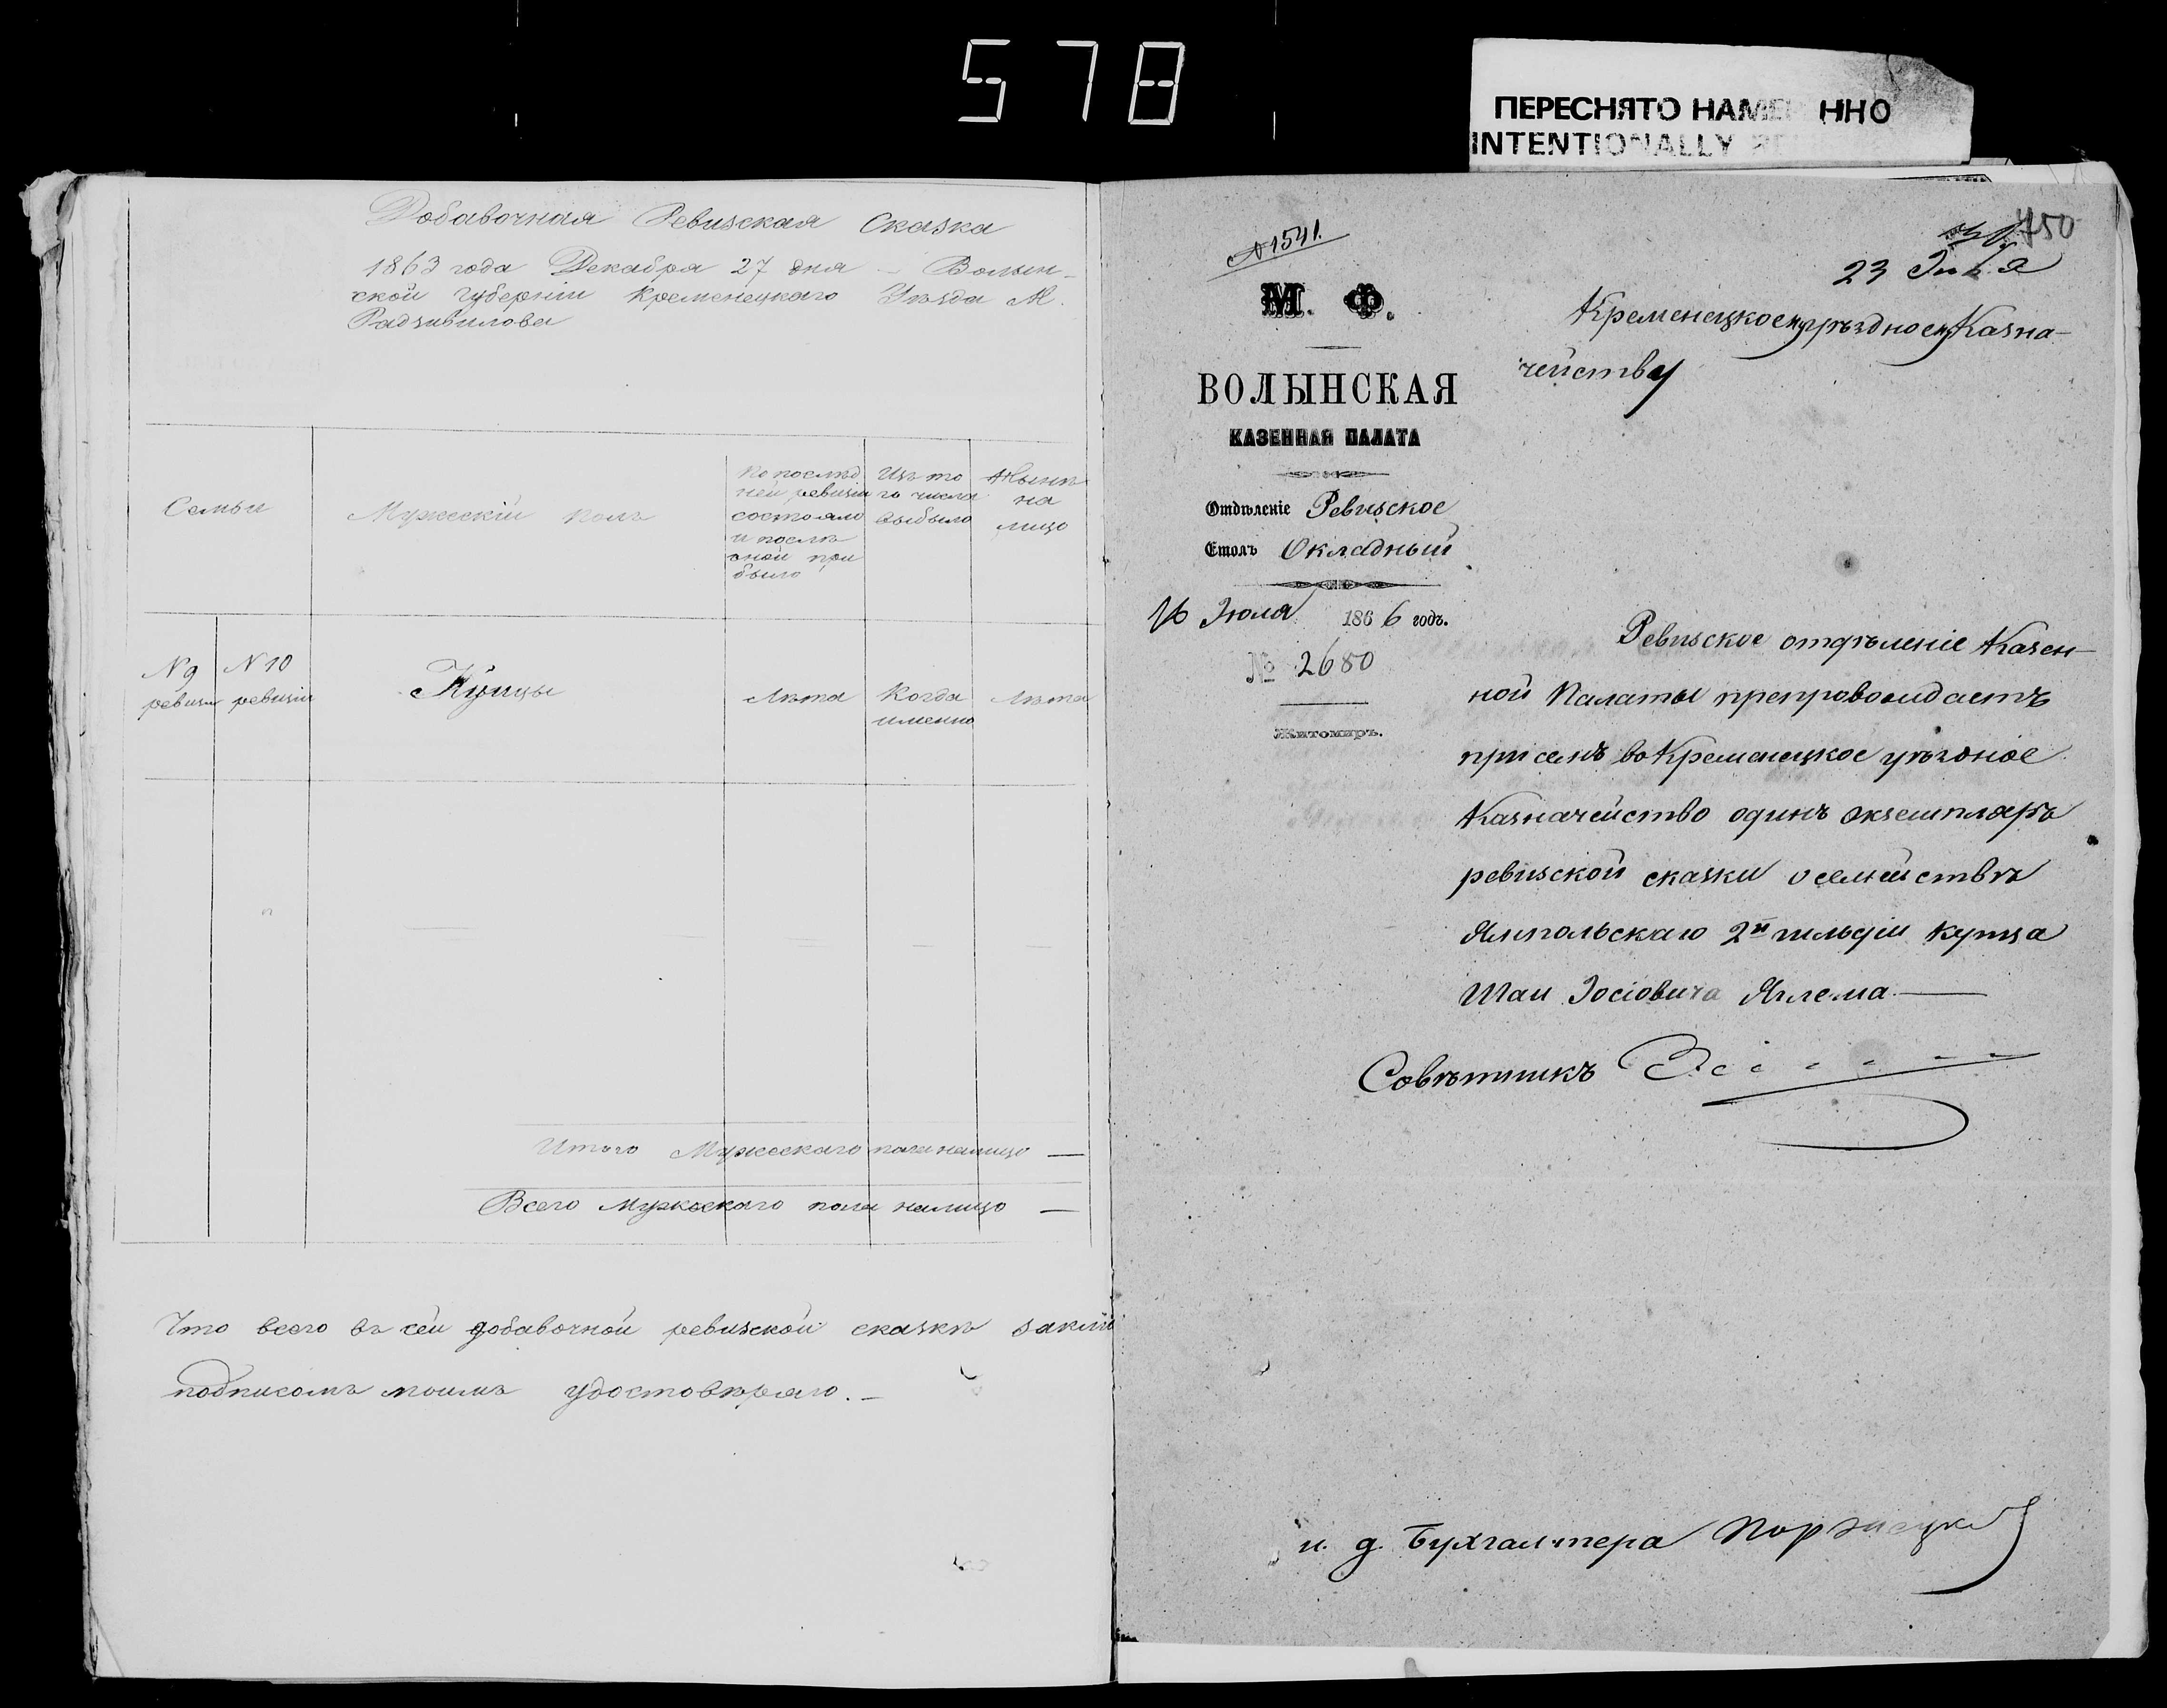 578
ПЕРЕСНЯТО НАМЕ ННО
INTENTIONALLY
Добавочная Ревизская Сказка
1863 года Декабря 27 дня – Волын-
ской Губерніи Кременецкаго Уѣзда М.
Радзивилова
Семьи
Мужескій полъ
По послѣд
ней ревизіи
состояло
и послѣ
оной при
было
Изъ то
го числа
выбыло
Нынѣ
на
лицо
N 9
ревизіи
N 10
ревизіи
Купцы
Лѣта
Когда
именно
Лѣта
Итого Мужескаго пола налицо —
Всего Мужескаго пола налицо —
Что всего въ сей добавочной ревизской сказкѣ
подписомъ моимъ удостовѣряю. –
№1541.
750
23
М. Ф.
ВОЛЫНСКАЯ
КАЗЕННАЯ ПАЛАТА
Отдѣленіе Ревизское
Столъ Окладный
16 Іюля 1866 годъ.
№ 2680
Житомиръ.
Кременецкому уѣздному Казна-
чейству
Ревизское отдѣленіе Казен-
ной Палаты препровождаетъ
при семъ во Кременецкое уѣздное
Казначейство одинъ экземпляръ
ревизской сказки о семействѣ
Ямпольскаго 2й гильдіи купца
Шаи Іосіовича —
Совѣтникъ
и. д. Бухгалтера